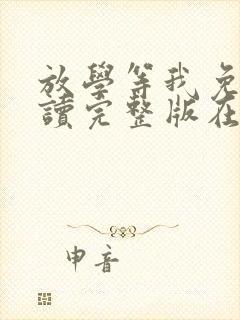 放學等我免
讀完整版在
申音